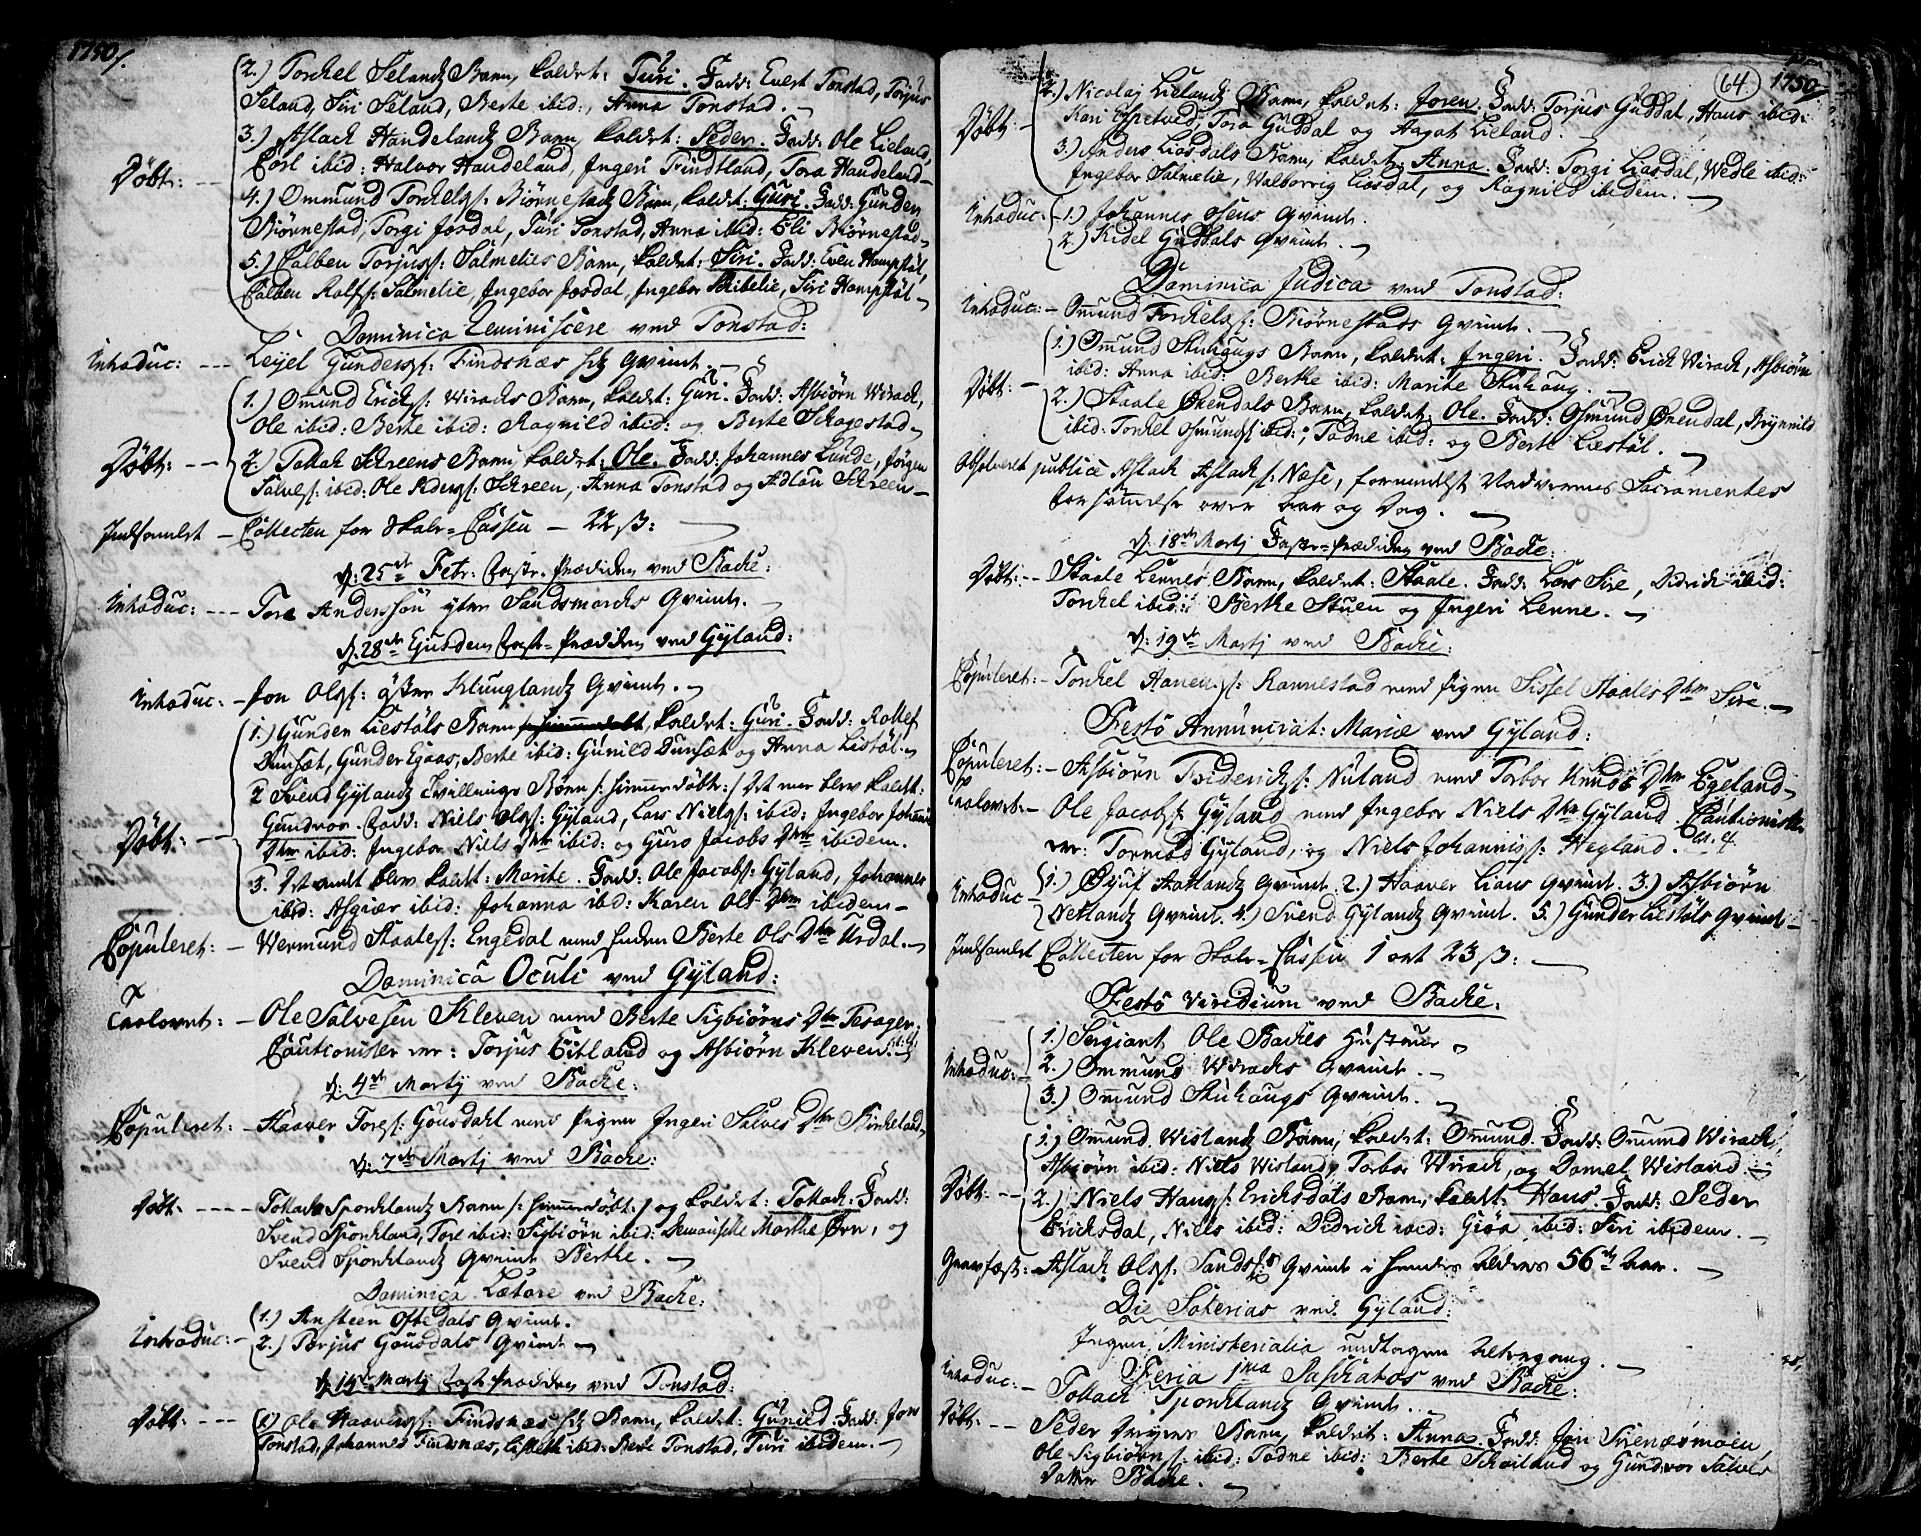 1750/.
2.) Torchel Selands Barn, kaldet: Turi. Fadd: Evert Tonstad, Torjus
Seland, Siri Seland, Berte ibid:, Anna Tonstad.
3.) Aslach Handelands Barn, kaldet: Peder. Fadd: Ole Lieland,
ibid: Halvor Handeland, Ingeri Findtland, Tora Handeland
Døbt:
4.) Ommund Torchels: Biørnestads Barn, kaldet: Guri. Fadd: Gunder
Biørnestad, Torgi Josdal, Turi Tonstad, Anna ibid: Eli Biørnestad
5.) Salben Torjus: Salmelies Barn, kaldet: Siri. Fadd: Even Hompstøl,
Salben Rolfs: Salmelie, Ingebor Josdal, Ingebor Skibelie, Siri Hompstøl
Dominica Reminiscere ved Tonstad:
Introduc: Leijel Gunders: Findsnæs Qvinde.
1.) Omund Erichs: Wirachs Barn, kaldet: Guri. Fadd: Asbiørn Wirach,
Ole ibid: Berte ibid: Ragnild ibid: og Berte Skagestad
Døbt:
2.) Tollach Skreens Barn, kaldet: Ole. Fadd: Johannes Lunde, Jørgen
Salves: ibid: Ole Peders: Skreen, Anna Tonstad og Adlau Skreen
Indsamlet Collecten for Skole-Cassen 22 ß:
d: 25de Febr: Faste-Prædiken ved Backe:
Introduc: Tore Anderssøn Sandsmarchs Qvinde.
d: 28de Faste-Prædiken ved Gyland:
Introduc: Jon Ols: Klunglands Qvinde.
1.) Gunder Liestøls Barn, kaldet: Guri. Fadd: Rollef
Dunsæt, Gunder Egaas, Berte ibid: Gunild Dunsæt og Anna Listøl
2 Svend Gylands Tvillinge Børn /: hiemmedøbt :/ Det ene blev kaldet:
Gundvor. Fadd: Niels Ols: Gyland, Lars Niels: ibid: Ingebor Johannis
Døbt:
Dtr ibid: Ingebor Niels Dtr ibid: og Guro Jacobs Dtr ibidem.
3. Det andet blev kaldet: Marite. Fadd: Ole Jacobs: Gyland, Johannes
ibid: Asgiær ibid: Johanna ibid: Karen Ols Dtr ibidem
Copuleret: Wermund Staales: Engedal med Berte Ols Dtr Urdal.
Dominica Oculi ved Gyland:
Trolovet: Ole Salvesen Kleven med Berte Sigbiørns Dtr Tesager.
Cautionister er: Torjus Eitland og Asbiørn Kleven.
d: 4de Martij ved Backe:
Copuleret: Haaver Tores: Gousdahl med Pigen Ingeri Salves Dtr Birkeland
d: 7de Martij ved Backe:
Døbt: Tollach Sponklands Barn /: hiemmedøbt :/ og kaldet: Tollach. Fadd:
Svend Sponkland, Tore ibid: Sigbiørn ibid: Marthe Ørn, og
Svend Sponklands Qvinde Berthe.
Dominica Lætare ved Backe:
Introduc:
1.) Ansteen Oftedals Qvinde.
2.) Torjus Gousdals Qvinde
d: 14de Martij Faste-Prædiken ved Tonstad:
Døbt: 1.) Ole Haavers: Findsnæs Barn, kaldet: Gunild. Fadd: Jon
Tonstad, Johannes Findsnæs, Lisbeth ibid: Berte Tonstad, Turi ibidem.
64
1750/
2.) Nicolaj Lielands Barn, kaldet: Joren. Fadd: Torjus Guddal, Hans ibid:
Kari Espetveid, Tora Guddal og Aagot Lieland.
Døbt:
3.) Anders Liosdals Barn, kaldet: Anna. Fadd: Torgi Liosdal, Wedle ibid:
Ingebor Salmelie, Walborrig Liosdal, og Ragnild ibidem.
Introduc: 1.) Johannes Osens Qvinde.
2.) Kidel Guddals Qvinde.
Dominica Judica ved Tonstad:
Introduc: Omund Torchels: Biørnestads Qvinde.
1.) Omund Barn, kaldet: Ingeri. Fadd: Erich Wirach, Asbiørn
ibid: Anna ibid: Berthe ibid: Marite
Døbt:
2.) Staale Øxendals Barn, kaldet: Ole. Fadd: Osmund Øxendal, Brynnild
ibid: Torkel Osmunds: ibid:, Tadne ibid: og Berte Læstøl.
Absolveret publicè Aslach Aslachs: Næse, formedelst Nadverens Sacramentes
Forsømmelse over Aar og Dag.
d: 18de Martj Faste-Prædiken ved Backe:
Døbt: Staale Lennes Barn, kaldet: Staale. Fadd: Lars Sire, Didrich ibid:
Torchel ibid: Berthe Stuen og Ingeri Lenne.
d: 19de Martj ved Backe:
Copuleret: Torchel Rannestad med Pigen Sissel Staales Dtr Sire.
Festo Annunciat: Mariæ ved Gyland:
Copuleret: Asbiørn Friderichs: Nuland med Torbor Knuds Dtr Egeland
Trolovet: Ole Jacobs: Gyland med Ingebor Niels Dtr Gyland. Cautionister
er: Tormod Gyland, og Niels Johannis: Hegland.
Introduc 1.) Aatlands Qvinde. 2.) Haaver Lians Qvinde. 3.) Asbiørn
Netlands Qvinde. 4.) Svend Gylands Qvinde. 5.) Gunder Liestøls Qvinde
Indsamlet Collecten for Skole-Cassen 1 ort 23 ß:
Festo Viridium ved Backe:
Introduc:
1.) Sergiant Ole Backes Hustrue
2.) Ommund Wirachs Qvinde.
3.) Omund Qvinde.
1.) Omund Wislands Barn, kaldet: Omund. Fadd: Omund Wirach,
Asbiørn ibid: Niels Wisland, Torbor Wirach, og Daniel Wisland.
Døbt:
2.) Niels Hans: Erichsdals Barn, kaldt: Hans. Fadd: Peder
Erichsdal, Niels ibid: Didrich ibid: Giøa ibid: Siri ibidem.
Gravfæst: Aslach Ols: Qvinde i hendes Alders 56de Aar.
Die Soterias ved Gyland:
Ingen Ministerialia undtagen Altergang.
Feria 1ma Paschatos ved Backe:
Introduc: Tollach Sponklands Qvinde.
Døbt: Peder Barn, kaldet: Anna. Fadd: Jon Sirenæsmoen,
Ole Sigbiørns: ibid: Tadne ibid: Berte Skailand og Gundvor Salves
Datter Backe.